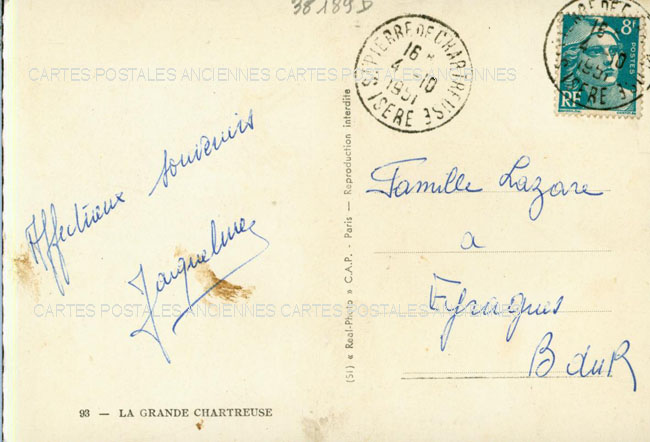 38189D
ST PIERRE DE CHARTREUSE
16 H
4 - 10
1951
ISERE
8F
POSTES
RF
CARTES POSTALES ANCIENNES CARTES POSTALES ANCIENNES
Affectueux souvenirs
Jacqueline
Famille Lazare
a
Eyragues
B du R
CARTES POSTALES ANCIENNES CARTES POSTALES ANCIENNES
(SI) « Real-Photo » C.A.P. - Paris — Reproduction interdite
93 — LA GRANDE CHARTREUSE